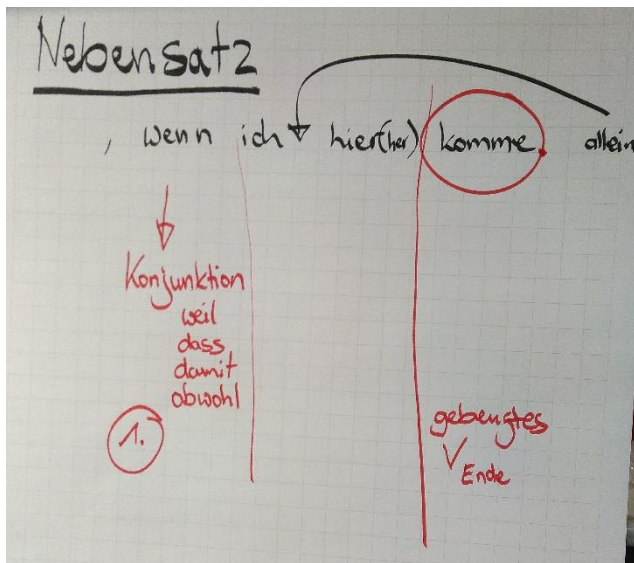 Nebensatz
, wenn ich hier(her) komme. allein
Konjunktion
weil
dass
damit
obwohl
1.
gebeugtes
V Ende